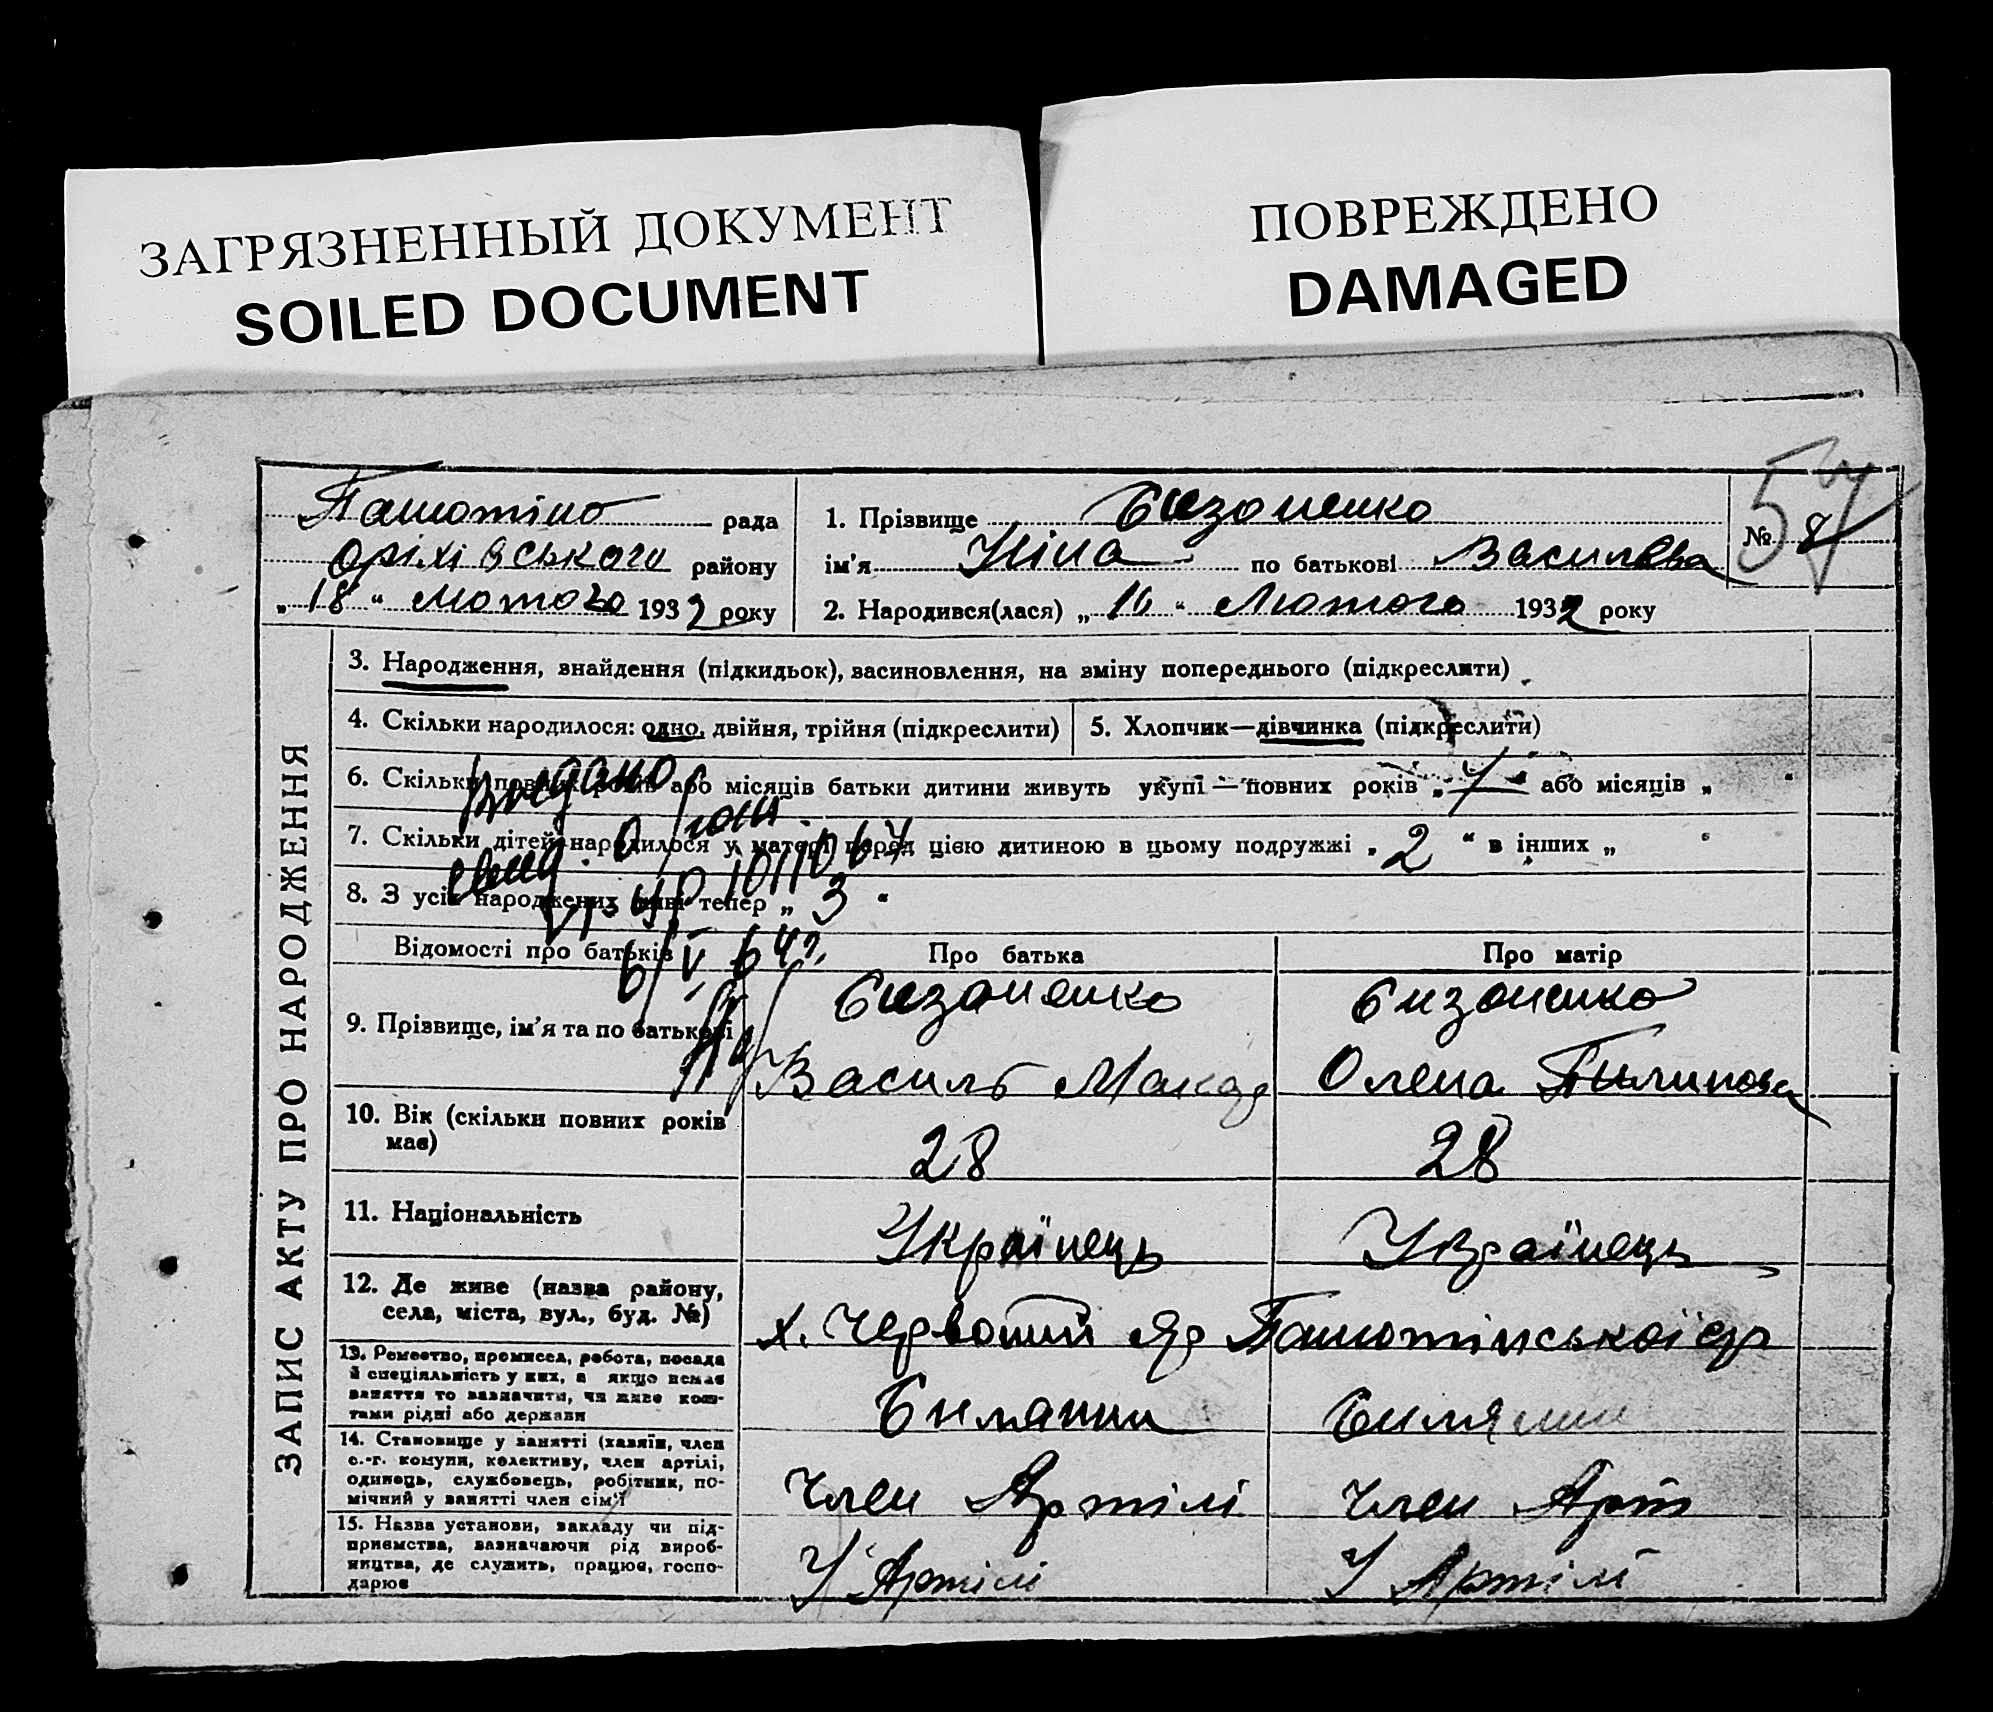 ЗАГРЯЗНЕННЫЙ ДОКУМЕНТ
SOILED DOCUMENT
ПОВРЕЖДЕНО
DAMAGED
рада
району
„ 18 “ Лютого 1932 року
1. Прізвище Бизоненко
ім'я Ніна по батькові Василева
2. Народився(лася) „ 10 “ Лютого 1932 року
№ 8
57
ЗАПИС АКТУ ПРО НАРОДЖЕННЯ
3. Народження, знайдення (підкидьок), васиновлення, на зміну попереднього (підкреслити)
4. Скільки народилося: одно, двійня, трійня (підкреслити)
5. Хлопчик—дівчинка (підкреслити)
6. Скільки повних років або місяців батьки дитини живуть укупі — повних років „ 7 “ або місяців „ “
7. Скільки дітей народилося у матері перед цією дитиною в цьому подружжі „ 2 “ в інших „ “
8. З усіх народжених живі тепер „ 3 “
видано
6/V 64 г.
Відомості про батьків
Про батька
Про матір
9. Прізвище, ім'я та по батькові
Бизоненко
Василь Макар
Бизоненко
Олена Пилипова
10. Вік (скільки повних років має)
28
28
11. Національність
Українець
Українець
12. Де живе (назва району,
села, міста, вул., буд. №)
х. Червоний Яр
13. Ремество, промисел, робота, посада
й спеціяльність у них, а якщо немає
заняття то зазначити, чи живе кош-
тами рідні або держави
14. Становище у занятті (хазяїн, член
с.-г. комуни, колективу, член артілі,
одинець, службовець, робітник, по-
мічний у занятті член сім'ї
Член Артілі
Член Арт
15. Назва установи, закладу чи під-
приємства, зазначаючи рід вироб-
ництва, де служить, працює, госпо-
дарює
У Артілі
У Артілі